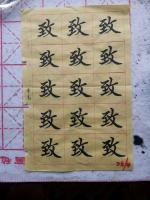 致致致
致致致
致致致
致致致
致致致